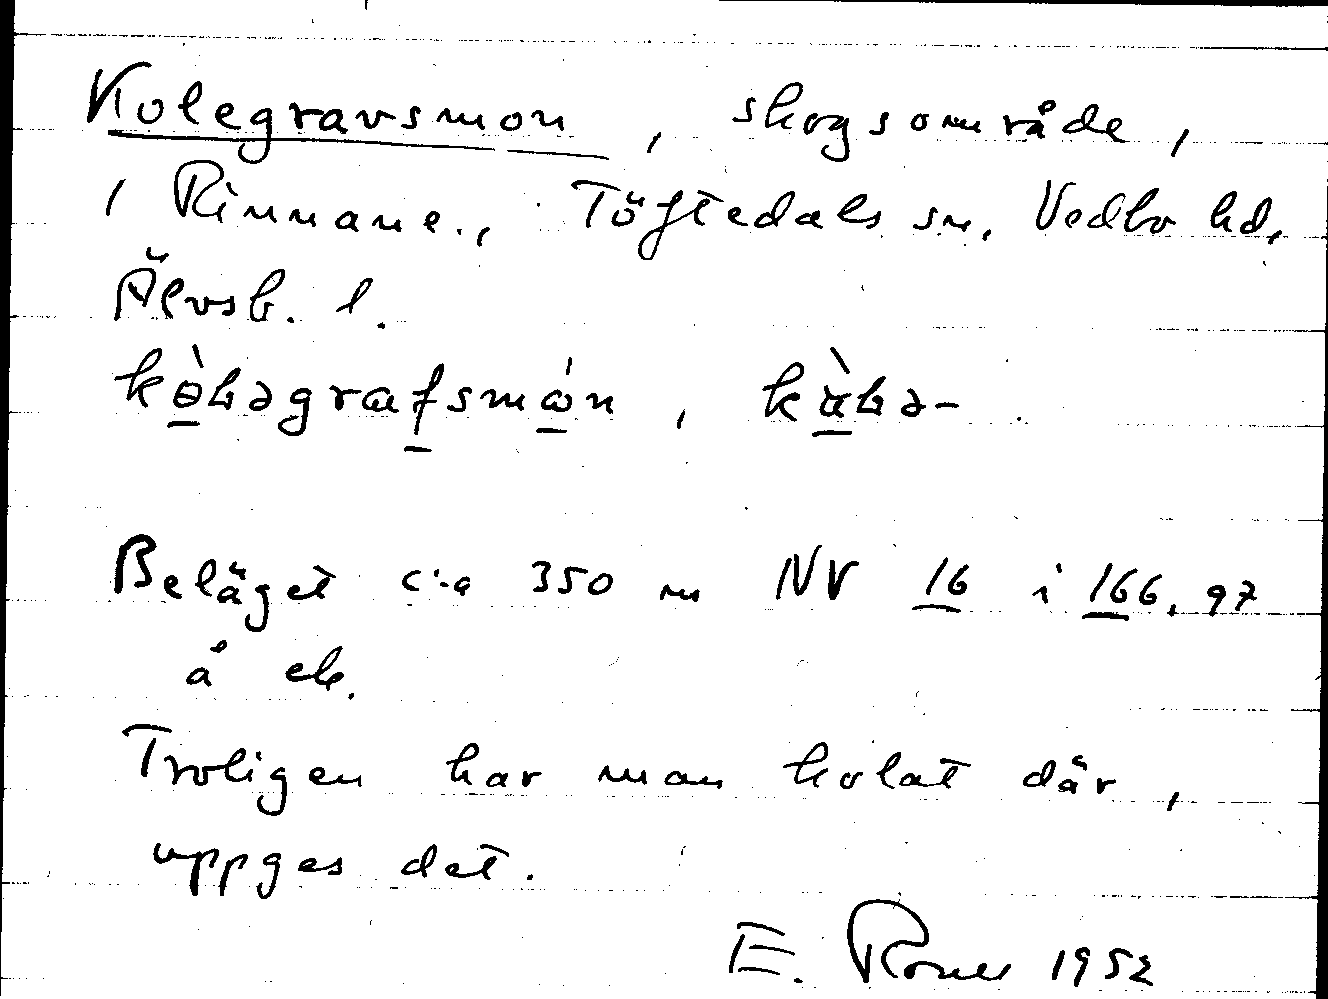 Kolegravsmon, skogsområde,
i Rinnane., Töftedals sn, Vedbo hd,
Älvsb. l.
Beläget c:a 350 m NV 16 i 166, 97
å ek.
Troligen har man kolat där,
uppges det.
E. 1952